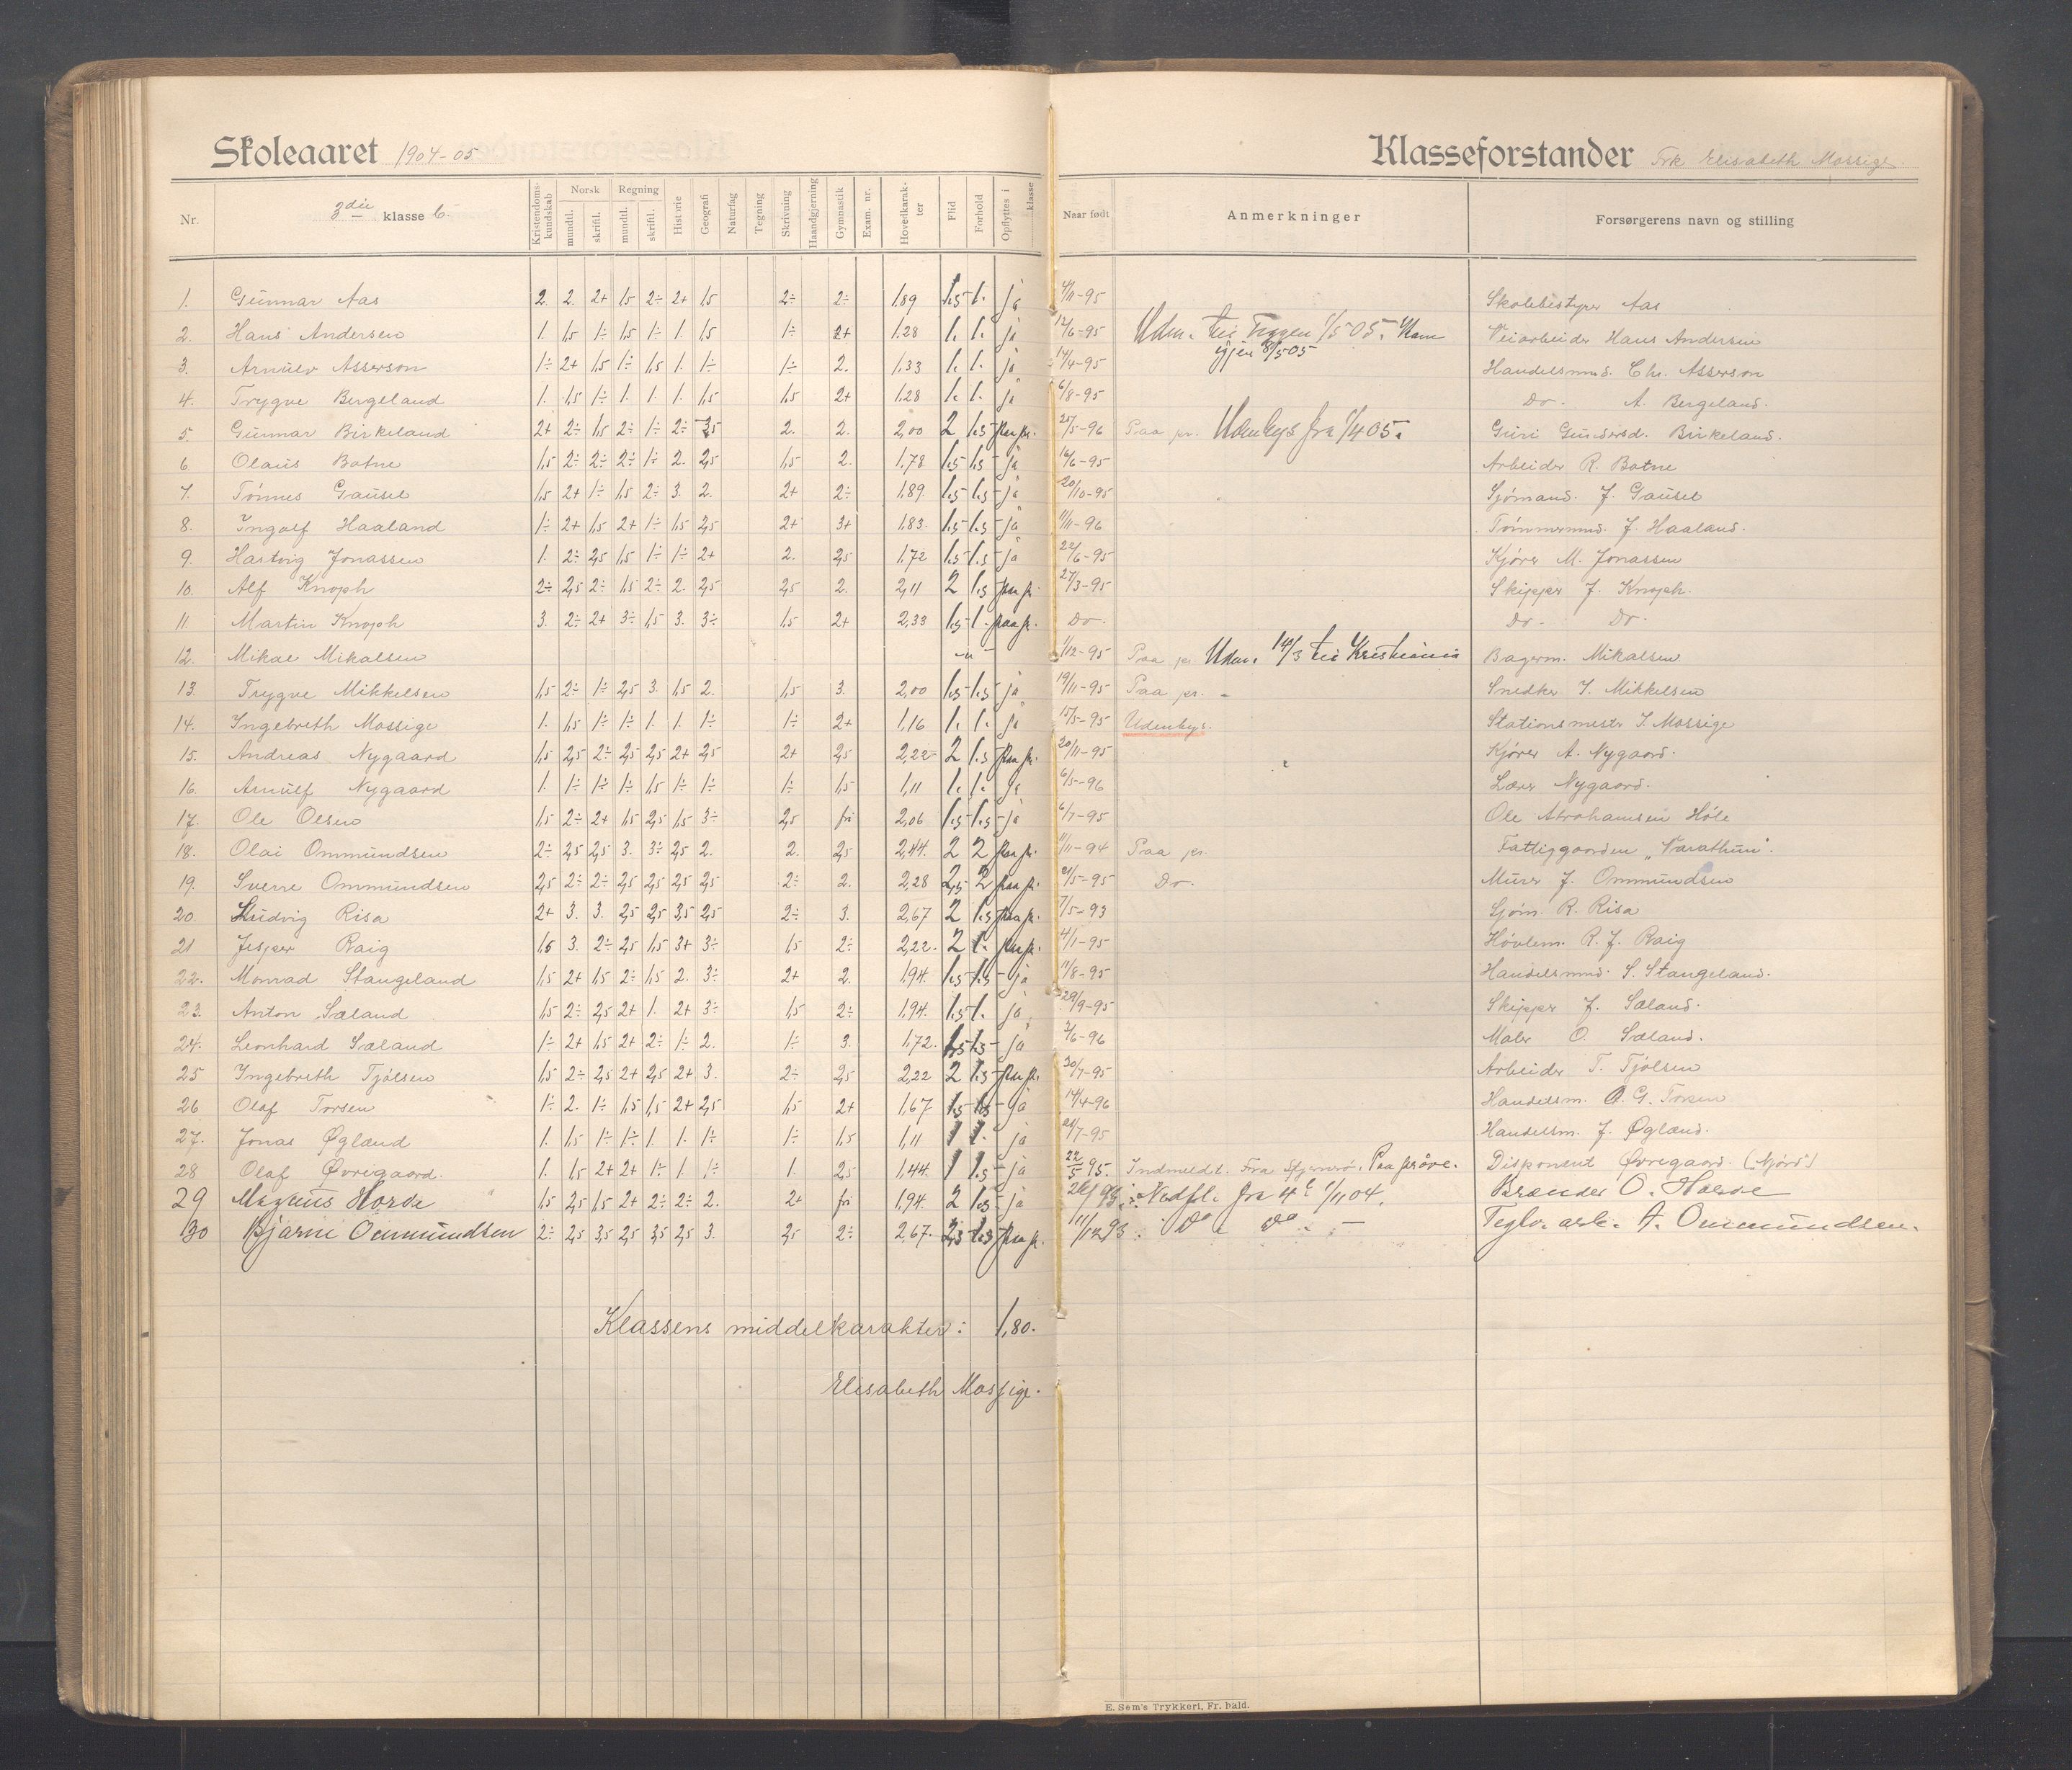 Skoleaaret 1904-05
Klasseforstander Frk Elisabeth Mossige
Nr. 3die klasse b. Kristendomskundskab Norsk mundtl. skriftl. Regning mundtl. skriftl. Historie Geografi Naturfag Tegning Skrivning Haandgjerning Gymnastik Exam. nr. Hovedkarakter Flid Forhold Opflyttes i klasse Naar født Anmerkninger Forsørgerens navn og stilling
1. Gunnar Aas 2. 2. 2+ 1,5 2÷ 2+ 1,5 2÷ 2÷ 1,89 1.5 1. ja 4/11-95 Skolebestyrer Aas
2. Hans Andersen 1. 1,5 1÷ 1,5 1÷ 1. 1,5 1÷ 2+ 1.28 1. 1. ja 12/6-95 Veiarbeider Hans Andersen
3. Arnulv Asserson 1÷ 2+ 1,5 1÷ 1,5 1. 1÷ 1÷ 2. 1,33 1. 1. ja 14/4-95 igjen 8/5 05 Handelsmd. Chr. Asserson
4. Trygve Bergeland 1. 1,5 1÷ 1. 1. 1. 1,5 1,5 2+ 1.28 1. 1. ja 6/8-95 Do. A. Bergeland.
5. Gunnar Birkeland 2+ 2÷ 1,5 2÷ 1÷ 2÷ 3,5 2. 2. 2,00 2 1.5 paa pr. 25/5-96 Paa pr. Udenbys fra 1/4 05. Guri Gundersd. Birkeland.
6. Olaus Botne 1,5 2÷ 2÷ 2÷ 1÷ 2. 2,5 1,5 2. 1.78 1.5 1.5 ja 16/6-95 Arbeider R. Botne
7. Tönnes Gausel 1,5 2+ 1÷ 1,5 2÷ 3. 2. 2+ 2÷ 1.89. 1.5 1.5 ja 20/10-95 Sjömand. J. Gausel
8. Ingolf Haaland 1÷ 2+ 1,5 2+ 1÷ 1,5 2,5 2+ 3+ 1.83. 1.5 1.5 ja 11/11-96 Tömmermd. J. Haaland.
9. Hartvig Jonassen 1. 2÷ 2,5 1,5 1÷ 1÷ 2+ 2. 2,5 1.72 1.5 1.5 ja 22/6-95 Kjörer M. Jonassen
10. Alf Knoph 2÷ 2,5 2÷ 1,5 2÷ 2. 2,5 2,5 2. 2,11 2 1.5 paa pr. 27/3-95 Skipper J. Knoph.
11. Martin Knoph 3. 2÷ 2+ 3÷ 1,5 3. 3÷ 1,5 2+ 2,33 1.5 1. paa pr. Do. Do. Do.
12. Mikal Mikalsen 1/12-95 Paa pr. Udm. 14/3 til Kristiania Bagerm. Mikalsen
13. Trygve Mikkelsen 1,5 2÷ 1÷ 2,5 3. 1,5 2. 1,5 3. 2,00 1.5 1.5 ja 19/11-95 Paa pr. Snedker T. Mikkelsen
14. Ingebreth Mossige 1. 1,5 1÷ 1÷ 1. 1. 1÷ 1÷ 2+ 1,16 1. 1. ja 15/5-95 Udenbys. Stationsmestr T. Mossige
15. Andreas Nygaard 1,5 2,5 2÷ 2,5 2,5 2+ 2,5 2+ 2,5 2,22 2 1.5 paa pr. 20/11-95 Kjörer A. Nygaard.
16. Arnulf Nygaard 1. 1÷ 1÷ 1÷ 1,5 1÷ 1÷ 1÷ 1,5 1,11 1. 1. ja 6/5-96 Lærer Nygaard.
17. Ole Olsen 1,5 2÷ 2+ 1,5 2,5 1,5 3÷ 2,5 fri 2,06 1.5 1.5 ja 6/7-95 Ole Abrahamsen Höle
18. Olai Ommundsen 2÷ 2,5 2,5 3. 3÷ 2,5 2. 2. 2,5 2,44. 2 2 paa pr. 11/11-94 Paa pr. Fattiggaarden "Varathun".
19. Sverre Ommundsen 2,5 2÷ 2÷ 2,5 2,5 2,5 2,5 2÷ 2. 2,28 2,5 2 paa pr. 21/5-95 Do. Murer J. Ommundsen
20. Ludvig Risa 2+ 3. 3. 2,5 2,5 3,5 2,5 2÷ 3. 2,67 2 1.5 paa pr. 7/5-93 Sjöm. R. Risa
21 Jesper Raig 1,5 3. 2÷ 2,5 1,5 3+ 3÷ 1,5 2÷ 2,22. 2 1. paa pr. 4/1-95 Hövlem. R. J. Raig
22. Monrad Stangeland 1,5 2+ 1,5 2÷ 1,5 2. 3÷ 2+ 2. 1,94. 1.5 1.5 ja 11/8-95 Handelsmd. S. Stangeland.
23. Anton Sæland 1,5 2÷ 2,5 2+ 1. 2+ 3÷ 1,5 2÷ 1,94. 1.5 1. ja 29/9-95 Skipper J. Sæland.
24. Leonhard Sæland 1÷ 2+ 1,5 2+ 2÷ 1÷ 2. 1÷ 3. 1,72. 1.5 1.5 ja 3/6-96 Maler O. Sæland.
25 Ingebreth Tjölsen 1,5 2÷ 2,5 2+ 2,5 2+ 3. 2÷ 2,5 2,22 2 1.5 paa pr. 30/7-95 Arbeider T. Tjölsen
26 Olaf Torsen 1÷ 2. 1÷ 1,5 1,5 2+ 2,5 1,5 2+ 1,67 1.5 1.5 ja 14/4-96 Handelsm. O. G. Torsen
27. Jonas Øglænd 1. 1,5 1÷ 1÷ 1. 1. 1÷ 1÷ 1,5 1,11 1 1. ja 21/7-95 Handelsm. J. Øglænd.
28 Olaf Øvregaard. 1. 1,5 2+ 2+ 1÷ 1. 1÷ 1. 2,5 1,44. 1 1.5 ja 22/5 95. Indmeldt. Fra Stjernarö. Paa pröve. Disponent Øvregaard. (Njörd)
29 Magnus Horda 1,5 2,5 1,5 2+ 2÷ 2÷ 2. 2+ fri 1,94. 2 1.5 ja Nedfl. fra 4 1/11 04. Brænder O. Horde
30 Bjarne Ommundsen 2÷ 2,5 3,5 2,5 3,5 2,5 3. 2,5 2÷ 2,67. 2,5 1.5 paa pr. 11/12 93. Do Do Teglv. arb. A. Ommundsen.
Klassens middelkarakter: 1,80.
Elisabeth Mossige.
E. Sem's Trykkeri, Fr. hald.